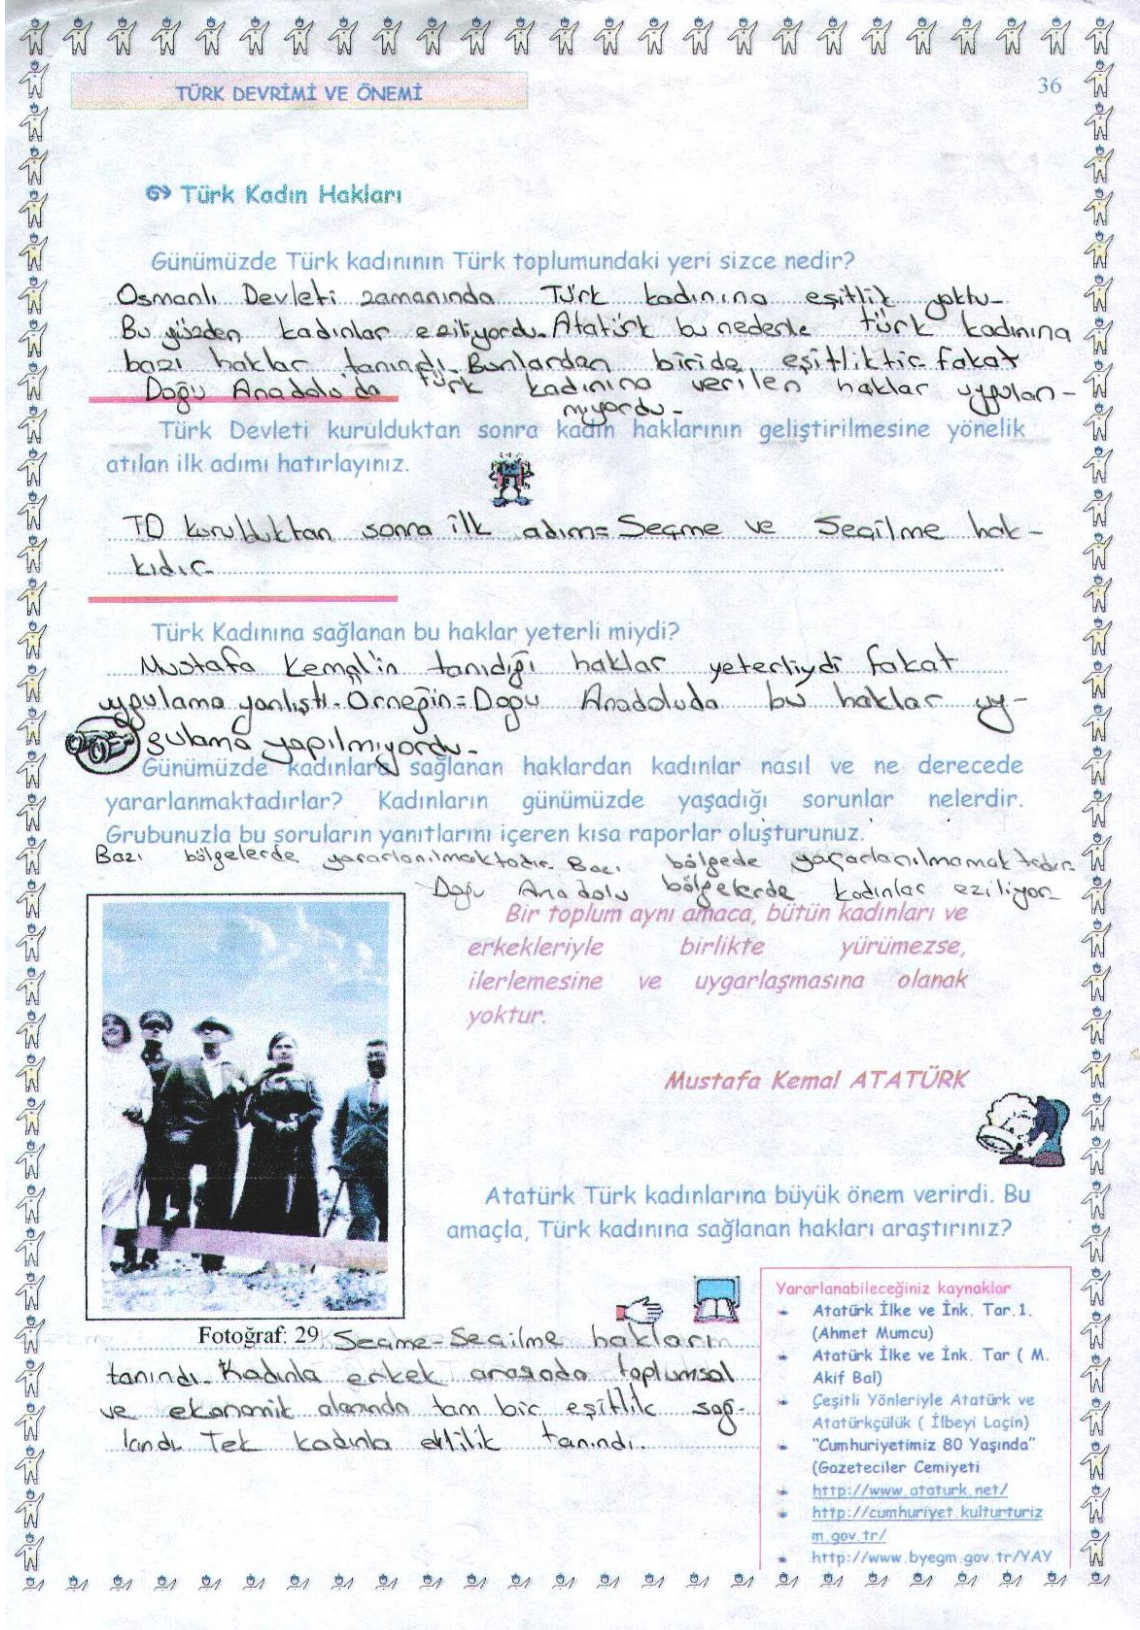 TÜRK DEVRİMİ VE ÖNEMİ
36
Türk Kadın Hakları
Günümüzde Türk kadınının Türk toplumundaki yeri sizce nedir?
Osmanlı Devleti zamanında Türk kadınına eşitlik yoktu-
Bu yüzden kadınlar eziliyordu. Atatürk bu nedenle türk kadınına
bazı haklar tanındı. Bunlardan biride eşitliktir fakat
Doğu Anadolu'da türk kadınına verilen haklar uygulan-
mıyordu-
Türk Devleti kurulduktan sonra kadın haklarının geliştirilmesine yönelik
atılan ilk adımı hatırlayınız.
TD kurulduktan sonra ilk adım= Seçme ve Seçilme hak-
kıdır-
Türk Kadınına sağlanan bu haklar yeterli miydi?
Mustafa Kemal'in tanıdığı haklar yeterliydi fakat
uygulama yanlıştı. Örneğin= Doğu Anadoluda bu haklar uy-
gulama yapılmıyordu-
Günümüzde kadınlara sağlanan haklardan kadınlar nasıl ve ne derecede
yararlanmaktadırlar? Kadınların günümüzde yaşadığı sorunlar nelerdir.
Grubunuzla bu soruların yanıtlarını içeren kısa raporlar oluşturunuz.
Bazı bölgelerde yararlanılmaktadır. Bazı bölgede yararlanılmamaktadır.
Doğu Anadolu bölgelerde kadınlar eziliyor-
Bir toplum aynı amaca, bütün kadınları ve
erkekleriyle birlikte yürümezse,
ilerlemesine ve uygarlaşmasına olanak
yoktur.
Mustafa Kemal ATATÜRK
Atatürk Türk kadınlarına büyük önem verirdi. Bu
amaçla, Türk kadınına sağlanan hakları araştırınız?
Fotoğraf: 29 Seçme-Seçilme hakları
tanındı. Kadınla erkek arasında toplumsal
ve ekonomik alanında tam bir eşitlik sağ-
landı. Tek kadınla evlilik tanındı.
Yararlanabileceğiniz kaynaklar
Atatürk İlke ve İnk. Tar.1.
(Ahmet Mumcu)
Atatürk İlke ve İnk. Tar ( M.
Akif Bal)
Çeşitli Yönleriyle Atatürk ve
Atatürkçülük ( İlbeyi Laçin)
"Cumhuriyetimiz 80 Yaşında"
(Gazeteciler Cemiyeti
http://www.ataturk.net/
http://cumhuriyet.kulturturiz
m.gov.tr/
http://www.byegm.gov.tr/YAY